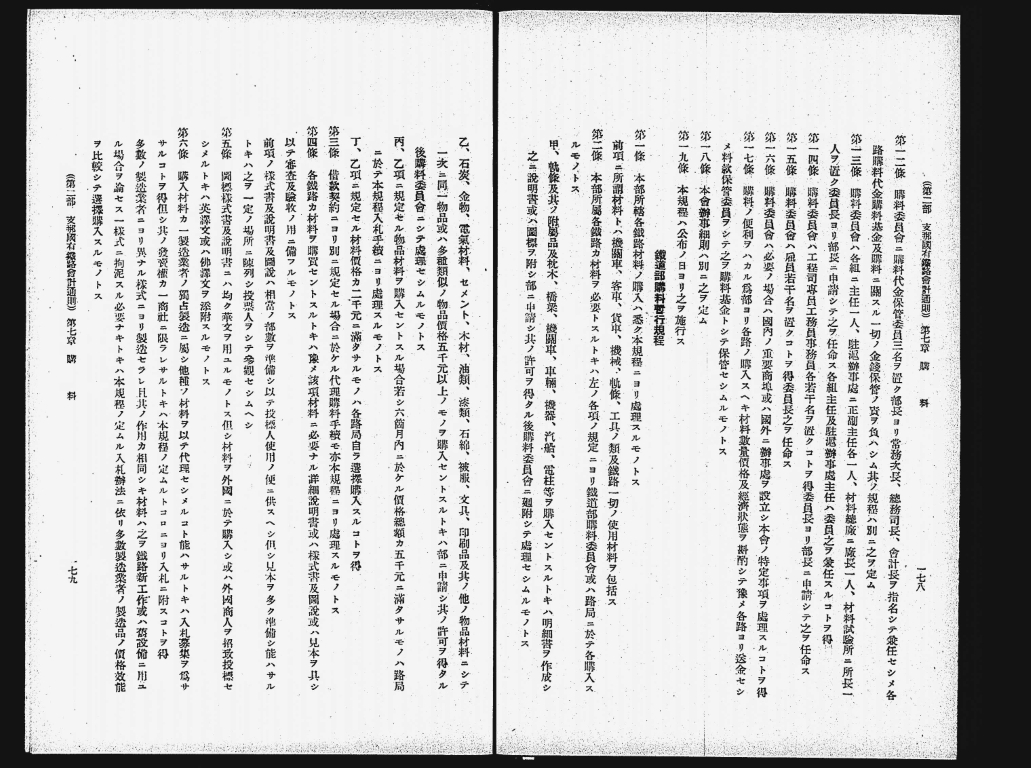 (第二部 支那國有鐵路會計通則) 第七章 購料 一七八
第一二條 購料委員會ニ購料代金保管委員三名ヲ置ク部長ヨリ常務次長、總務司長、會計長ヲ指名シテ兼任セシメ各
路購料代金購料基金及購料ニ關スル一切ノ金錢保管ノ責ヲ負ハシム其ノ規程ハ別ニ之ヲ定ム
第一三條 購料委員會ハ各組ニ主任一人、駐滬辦事處ニ正副主任各一人、材料總廠ニ廠長一人、材料試驗所ニ所長一
人ヲ置ク委員長ヨリ部長ニ申請シテ之ヲ任命ス各組主任及駐滬辦事處主任ハ委員之ヲ兼任スルコトヲ得
第一四條 購料委員會ハ工程司專員工務員事務員各若干名ヲ置クコトヲ得委員長ヨリ部長ニ申請シテ之ヲ任命ス
第一五條 購料委員會ハ雇員若干名ヲ置クコトヲ得委員長之ヲ任命ス
第一六條 購料委員會ハ必要ノ場合ハ國內ノ重要商埠或ハ國外ニ辦事處ヲ設立シ本會ノ特定事項ヲ處理スルコトヲ得
第一七條 購料ノ便利ヲハカル爲部ヨリ各路ノ購入スヘキ材料數量價格及經濟狀態ヲ斟酌シテ豫メ各路ヨリ送金セシ
メ料款保管委員ヲシテ之ヲ購料基金トシテ保管セシムルモノトス
第一八條 本會辦事細則ハ別ニ之ヲ定ム
第一九條 本規程ハ公布ノ日ヨリ之ヲ施行ス
鐵道部購料暫行規程
第一條 本部所轄各鐵路材料ノ購入ハ悉ク本規程ニヨリ處理スルモノトス
前項ニ所謂材料トハ機關車、客車、貨車、機械、軌條、工具ノ類及鐵路一切ノ使用材料ヲ包括ス
第二條 本部所屬各鐵路カ材料ヲ必要トスルトキハ左ノ各項ノ規定ニヨリ鐵道部購料委員會或ハ路局ニ於テ各購入ス
ルモノトス
甲、軌條及其ノ附屬品及枕木、橋梁、機關車、車輛、機器、汽船、電柱等ヲ購入セントスルトキハ明細書ヲ作成シ
之ニ說明書或ハ圖標ヲ附シ部ニ申請シ其ノ許可ヲ得タル後購料委員會ニ廻附シテ處理セシムルモノトス
乙、石炭、金物、電氣材料、セメント、木材、油類、漆類、石綿、被服、文具、印刷品及其ノ他ノ物品材料ニシテ
一次ニ同一物品或ハ多種類似ノ物品價格五千元以上ノモノヲ購入セントスルトキハ部ニ申請シ其ノ許可ヲ得タル
後購料委員會ニシテ處理セシムルモノトス
丙、乙項ニ規定セル物品材料ヲ購入セントスル場合若シ六箇月內ニ於ケル價格總額カ五千元ニ滿タサルモノハ路局
ニ於テ本規程入札手續ニヨリ處理スルモノトス
丁、乙項ニ規定セル材料價格カ二千元ニ滿タサルモノハ各路局自ラ選擇購入スルコトヲ得
第三條 借款契約ニヨリ別ニ規定セル場合ニ於ケル代理購料手續モ亦本規程ニヨリ處理スルモノトス
第四條 各鐵路カ材料ヲ購買セントスルトキハ豫メ該項材料ニ必要ナル詳細說明書或ハ樣式書及圖說或ハ見本ヲ具シ
以テ審査及驗收ノ用ニ備フルモノトス
前項ノ樣式書及說明書及圖說ハ相當ノ部數ヲ準備シ以テ投標人使用ノ便ニ供スヘシ但シ見本ヲ多ク準備シ能ハサル
トキハ之ヲ一定ノ場所ニ陳列シ投票人ヲシテ參觀セシムヘシ
第五條 圖標樣式書及說明書ニハ均ク華文ヲ用ユルモノトス但シ材料ヲ外國ニ於テ購入シ或ハ外國商人ヲ招致投標セ
シメルトキハ英譯文或ハ佛譯文ヲ添附スルモノトス
第六條 購入材料カ一製造業者ノ獨占製造ニ屬シ他種ノ材料ヲ以テ代理セシメルコト能ハサルトキハ入札募集ヲ爲サ
サルコトヲ得但シ其ノ發賣權カ一商社ニ限ラレサルトキハ本規程ノ定ムルトコロニヨリ入札ニ附スコトヲ得
多數ノ製造業者ニヨリ異ナル樣式ニヨリ製造セラレ且其ノ作用カ相同シキ材料ハ之ヲ鐵路新工作或ハ舊設備ニ用ユ
ル場合ヲ論セス一樣式ニ拘泥スル必要ナキトキハ本規程ノ定ムル入札辦法ニ依リ多數製造業者ノ製造品ノ價格效能
ヲ比較シテ選擇購入スルモノトス
(第二部 支那國有鐵路會計通則) 第七章 購料 一七九